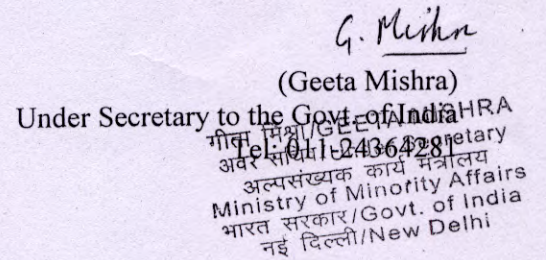 G. Mishra
(Geeta Mishra)
Under Secretary to the Govt. of India
Tel: 011-24364281
गीता मिश्रा/GEETA MISHRA
अवर सचिव/Under Secretary
अल्पसंख्यक कार्य मंत्रालय
Ministry of Minority Affairs
भारत सरकार/Govt. of India
नई दिल्ली/New Delhi